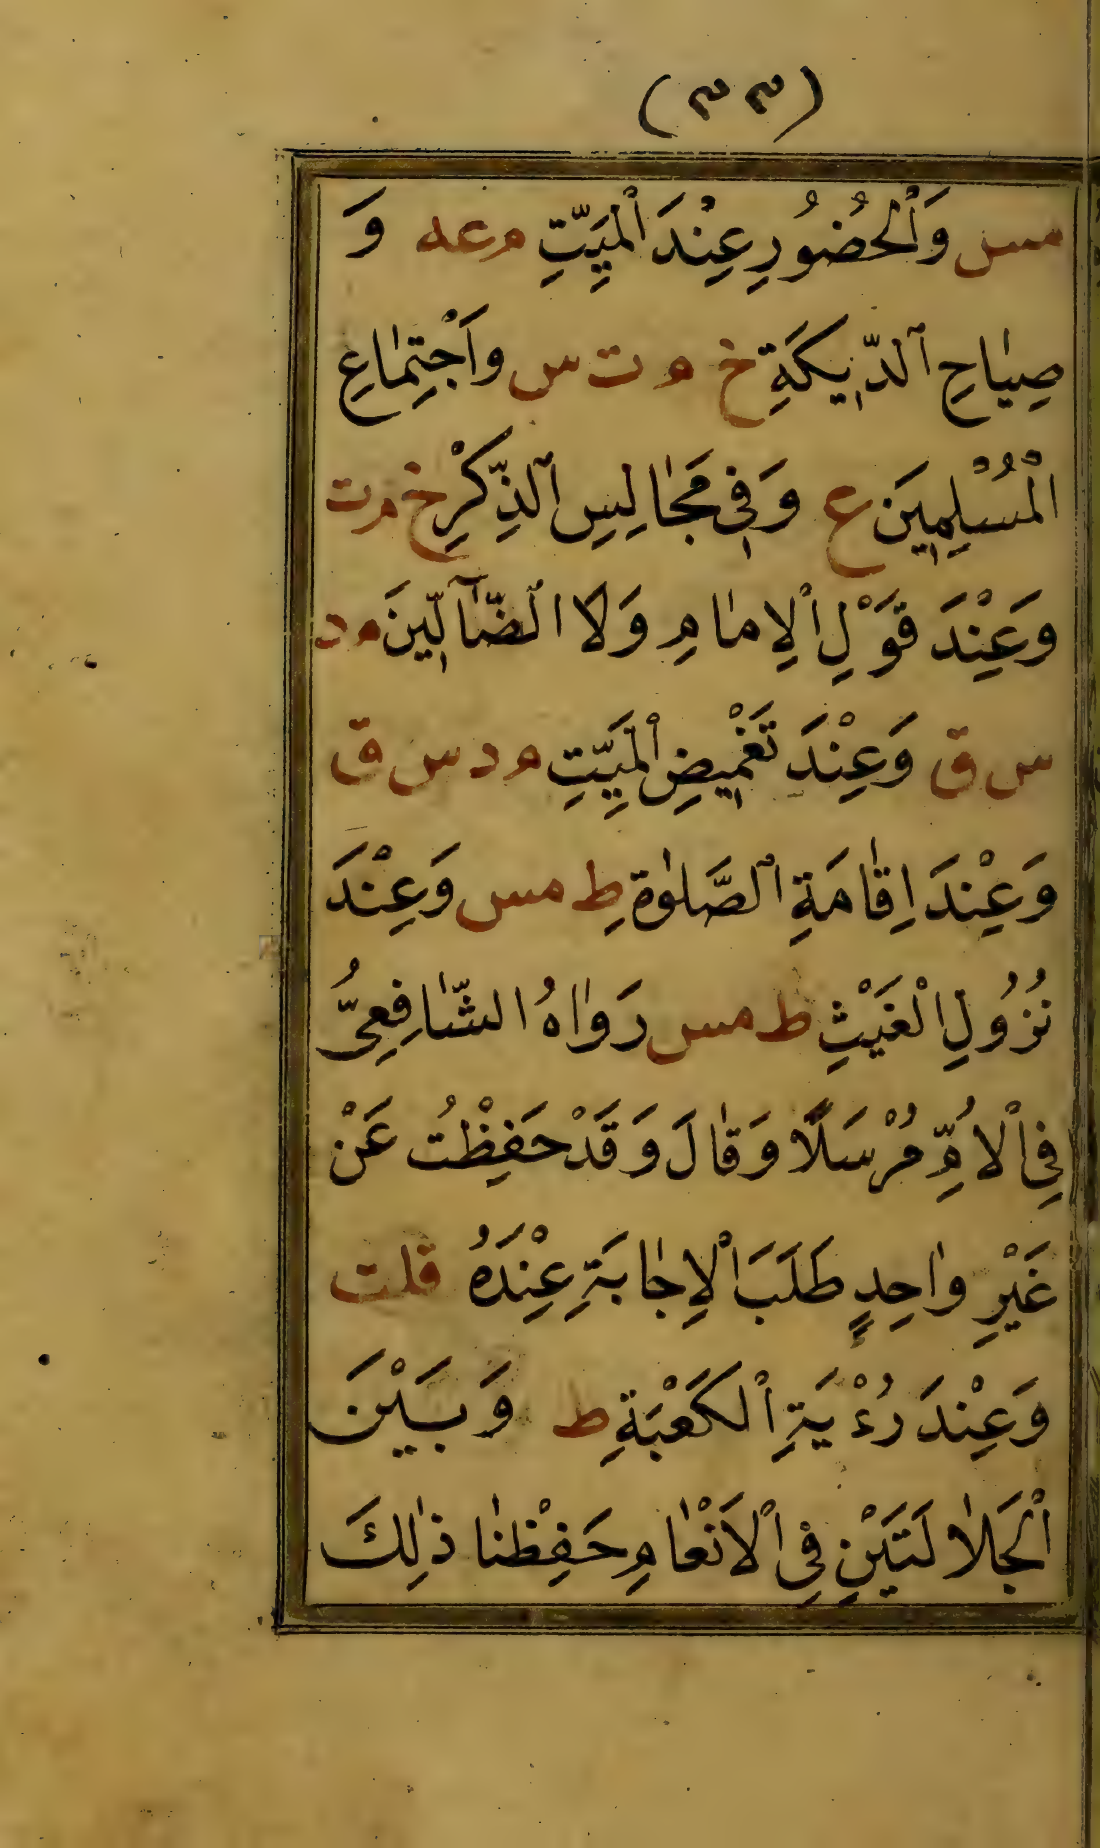 (٣٣)
مس وَالْحُضُورِ عِنْدَ الْمَيِّتِ م عه وَ
صِيَاحِ الدِّيكَةِ خ م ت س وَاجْتِمَاعِ
الْمُسْلِمِينَ ع وَفِي مَجَالِسِ الذِّكْرِ خ م ت
وَعِنْدَ قَوْلِ الْإِمَامِ وَلَا الضَّالِّينَ م د
س ق وَعِنْدَ تَغْمِيضِ الْمَيِّتِ م د س ق
وَعِنْدَ اِقَامَةِ الصَّلٰوةِ ط مس وَعِنْدَ
نُزُولِ الْغَيْثِ ط مس رَوَاهُ الشَّافِعِيُّ
فِي الْاُمِّ مُرْسَلًا وَقَالَ وَقَدْ حَفِظْتُ عَنْ
غَيْرِ وَاحِدٍ طَلَبَ الْاِجَابَةِ عِنْدَهُ قلت
وَعِنْدَ رُءْيَةِ الْكَعْبَةِ ط وَبَيْنَ
الْجَلَالَتَيْنِ فِي الْاَنْعَامِ حَفِظْنَا ذٰلِكَ